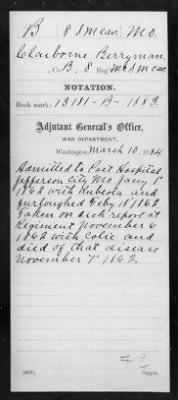 B 8 S M Cav. Mo.
Claiborne Berryman
, Co. B, 8 Reg't Mo S M Cav
NOTATION.
Book mark: 13181-B-1883
Adjutant General's Office,
WAR DEPARTMENT,
Washington, March 10, 1884.
Admitted to Post Hospital
Jefferson City Mo Jany 1st
1862 with Rubeola and
furloughed Feby 18" 1862
Taken on sick report at
Regiment November 6
1862 with Colic and
died of that disease
November 7" 1862.
Copyist.